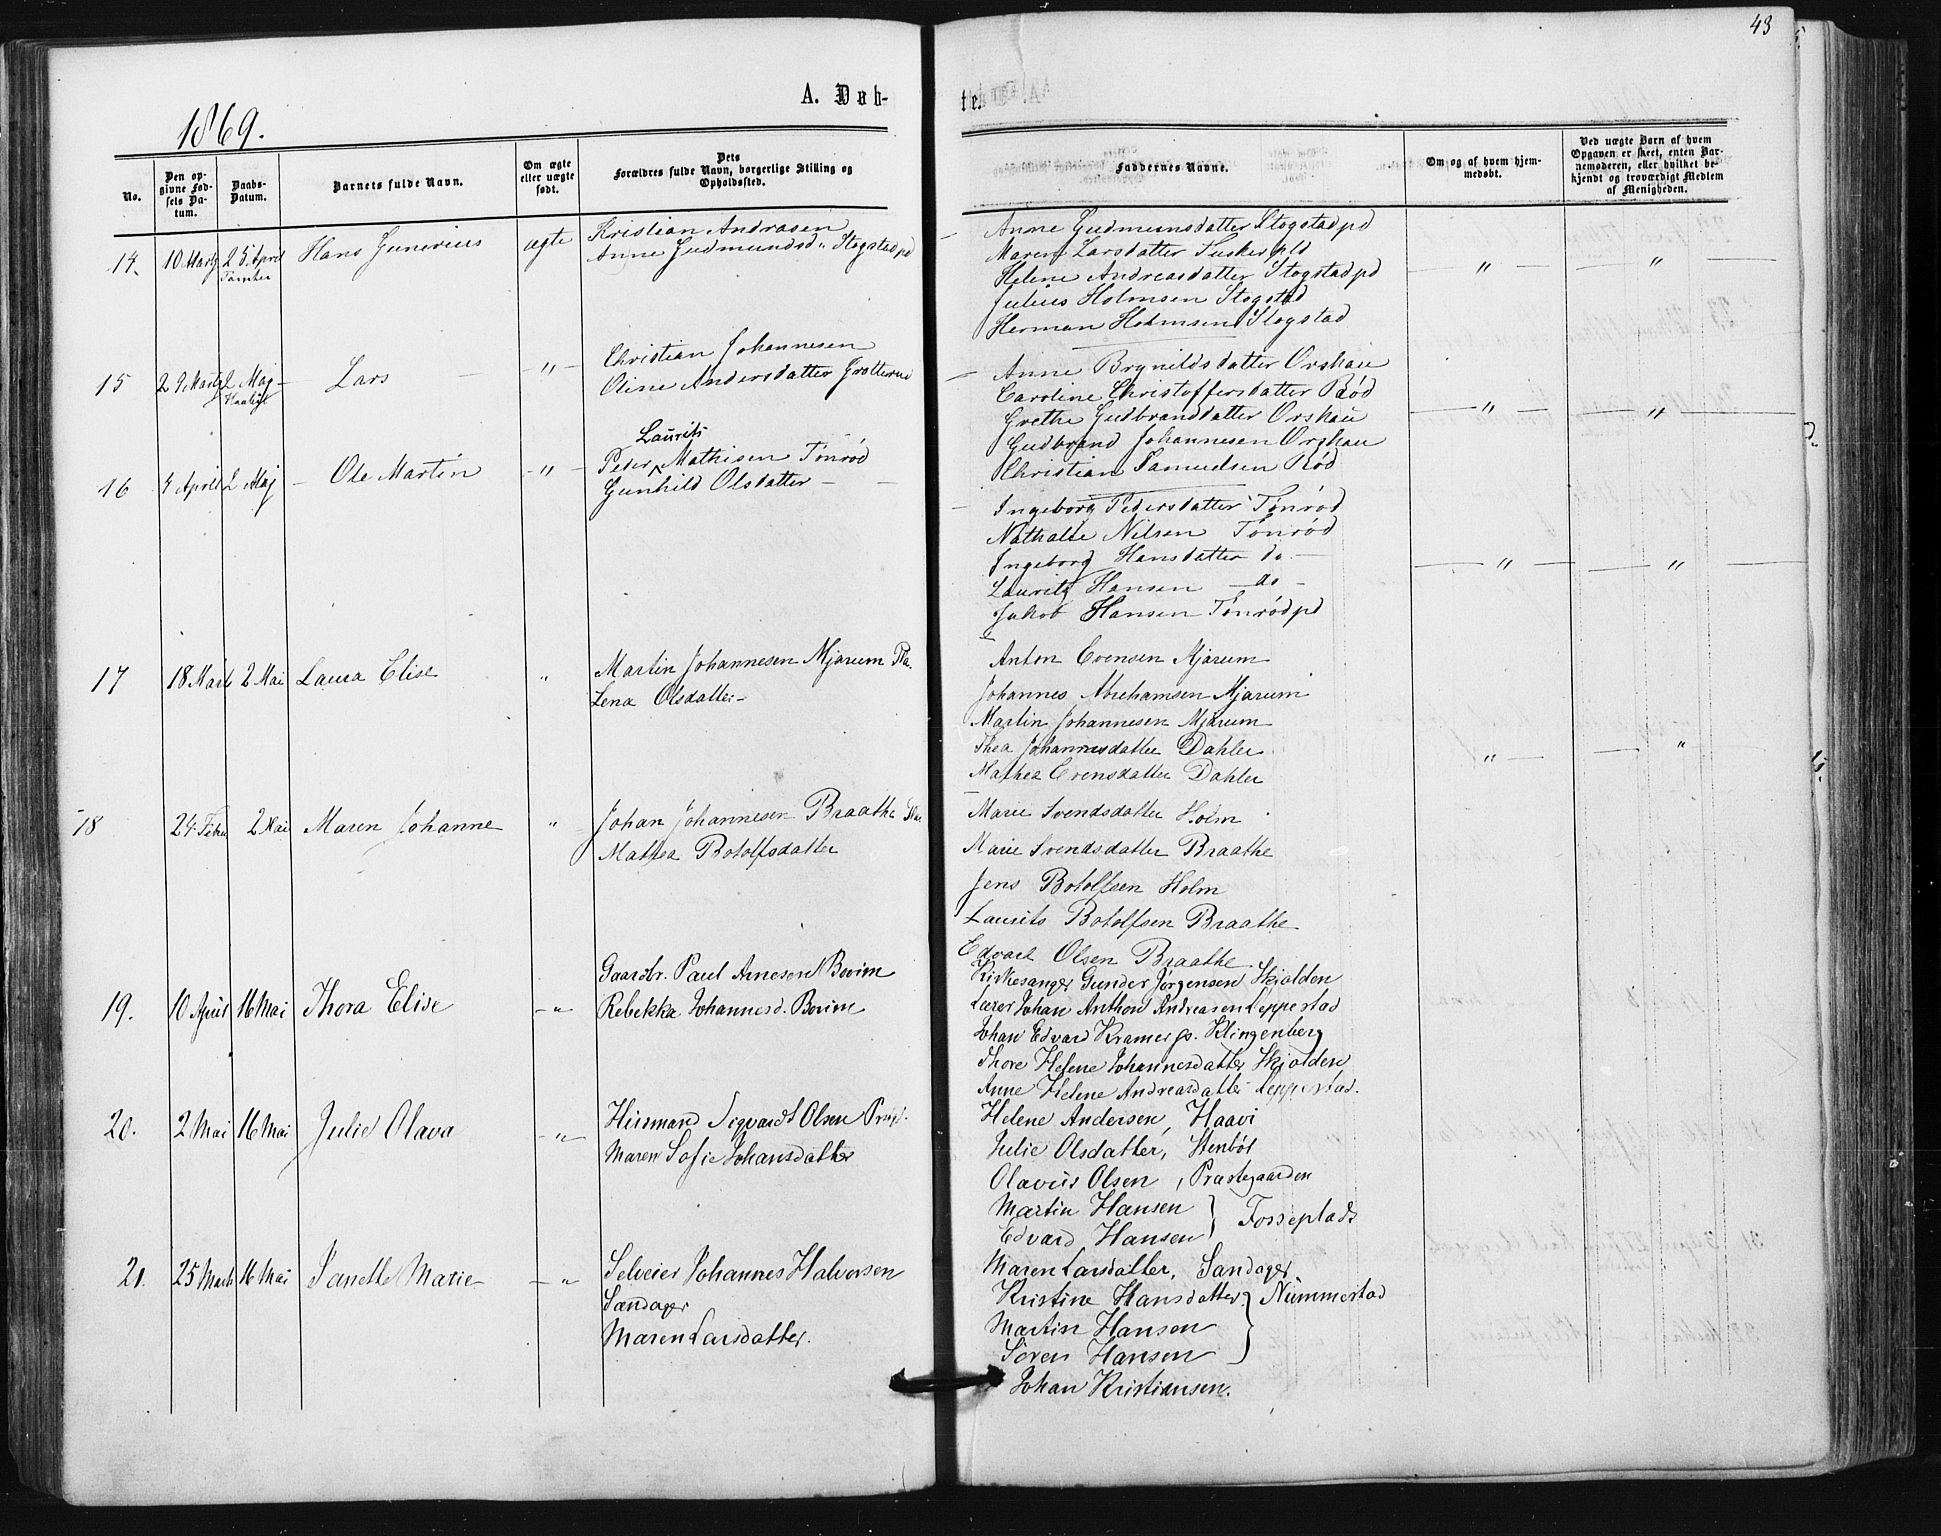 43
1869.
A. Døb-
te.
No.
Den op-
givne Fød-
sels Da-
tum.
Daabs-
Datum.
Barnets fulde Navn.
Om ægte
eller uægte
født.
Dets
Forældres fulde Navn, borgerlige Stilling og
Opholdssted.
Faddernes Navne.
Om og af hvem hjem-
medøbt.
Ved uægte Barn af hvem
Opgaven er skeet, enten Bar-
nemoderen, eller hvilket be-
kjendt og troværdigt Medlem
af Menigheden.
14. 10 Marts 25 April Hans Gunerius ægte Kristian Andrasen
Anne Gudmundsd. Stogstad pd
Anne Gudmunsdatter Stogstad pd
Maren Larsdatter Susker pld
Helene Andreasdatter Stogstad pd
Julius Holmsen Stogstad
Herman Holmsen Stogstad
" "
15 29 Marts 2 Maj Lars " Christian Johannesen
Oline Andersdatter Grotterud
Anne Brynildsdatter Orskau
Caroline Christoffersdatter Rød
Grethe Gudbrandsdatter Orskau
Gudbrand Johannesen Orskau
Christian Samuelsen Rød
" "
16 4 April 2 Maj Ole Martin " Peter Laurits Mathisen Tonrød
Gunhild Olsdatter
Ingeborg Pedersdatter Tonrød
Nathalie Nilsen Tonrød
Ingeborg Hansdatter do
Laurits Hansen do
Jakob Hansen Tonrød pd
" "
17 18 Marts 2 Mai Laura Elise " Martin Johannesen Mjærum Pla.
Lena Olsdatter
Anton Evensen Mjærum
Johannes Abrahamsen Mjærum
Martin Johannesen Mjærum
Thea Johannesdatter Dahler
Mathea Evensdatter Dahler
" "
18 24 Febr 2 Mai Maren Johanne " Johan Johannesen Braathe
Mathea Botolfsdatter
Marie Svendsdatter Holm
Marie Svendsdatter Braathe
Jens Botolfsen Holm
Laurits Botolfsen Braathe
Edvart Olsen Braathe
19. 10 April 16 Mai Thora Elise " Gaardbr. Paul Arnesen Bovim
Rebekka Johannesd. Bovim
Kirkesanger Gunder Jørgensen Skjolden
Lærer Johan Anthon Andreasen Leppestad
Johan Edvard Kramer p. Klingenberg
Thore Helene Johannesdatter Skjolden
Anne Helene Andreasdatter Leppestad.
20. 2 Mai 16 Mai Julie Olava " Huusmand Sigvardt Olsen
Maren Sofie Johansdatter
Helene Andersen, Haavi
Julie Olsdatter, Stenbøl
Olavus Olsen, Præstegaarden
Martin Hansen } Fosseplads
Edvard Hansen
21. 25 Marts 16 Mai Janette Marie " Selveier Johannes Halvorsen
Sandager
Maren Larsdatter.
Maren Larsdatter, Sandager
Kristine Hansdatter } Nummestad
Martin Hansen
Søren Hansen
Johan Kristiansen.